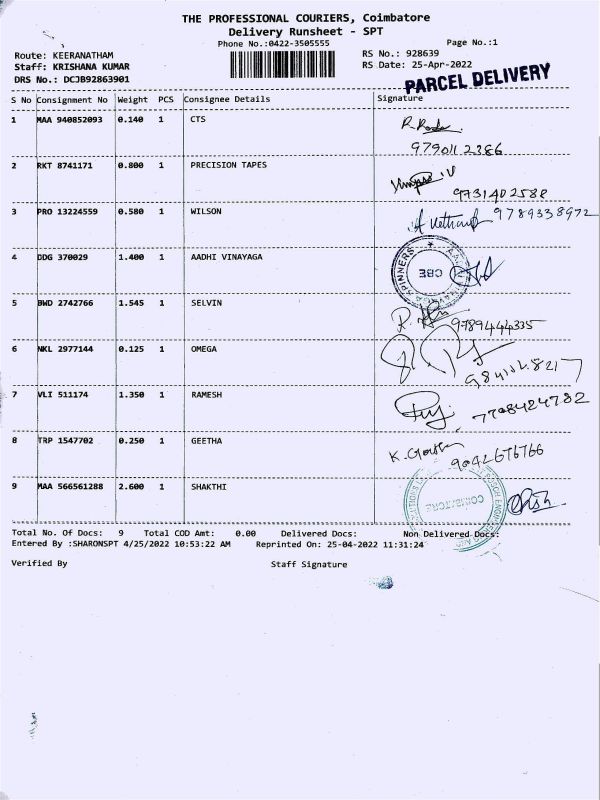 THE PROFESSIONAL COURIERS, Coimbatore
Delivery Runsheet - SPT
Phone No.:0422-3505555
Page No.:1
Route: KEERANATHAM
RS No.: 928639
Staff: KRISHANA KUMAR
RS Date: 25-Apr-2022
DRS No.: DCJB92863901
PARCEL DELIVERY
S No Consignment No Weight PCS Consignee Details Signature
1 MAA 940852093 0.140 1 CTS
9790112386
2 RKT 8741171 0.800 1 PRECISION TAPES
9731402588
3 PRO 13224559 0.580 1 WILSON 9789338972
4 DDG 370029 1.400 1 AADHI VINAYAGA
SPINNERS CBE
5 BWD 2742766 1.545 1 SELVIN
9789444335
6 NKL 2977144 0.125 1 OMEGA
7 VLI 511174 1.350 1 RAMESH
7708424782
8 TRP 1547702 0.250 1 GEETHA
9042676766
9 MAA 566561288 2.600 1 SHAKTHI
COIMBATORE
Total No. Of Docs: 9 Total COD Amt: 0.00 Delivered Docs: Non Delivered Docs:
Entered By :SHARONSPT 4/25/2022 10:53:22 AM Reprinted On: 25-04-2022 11:31:24
Verified By Staff Signature